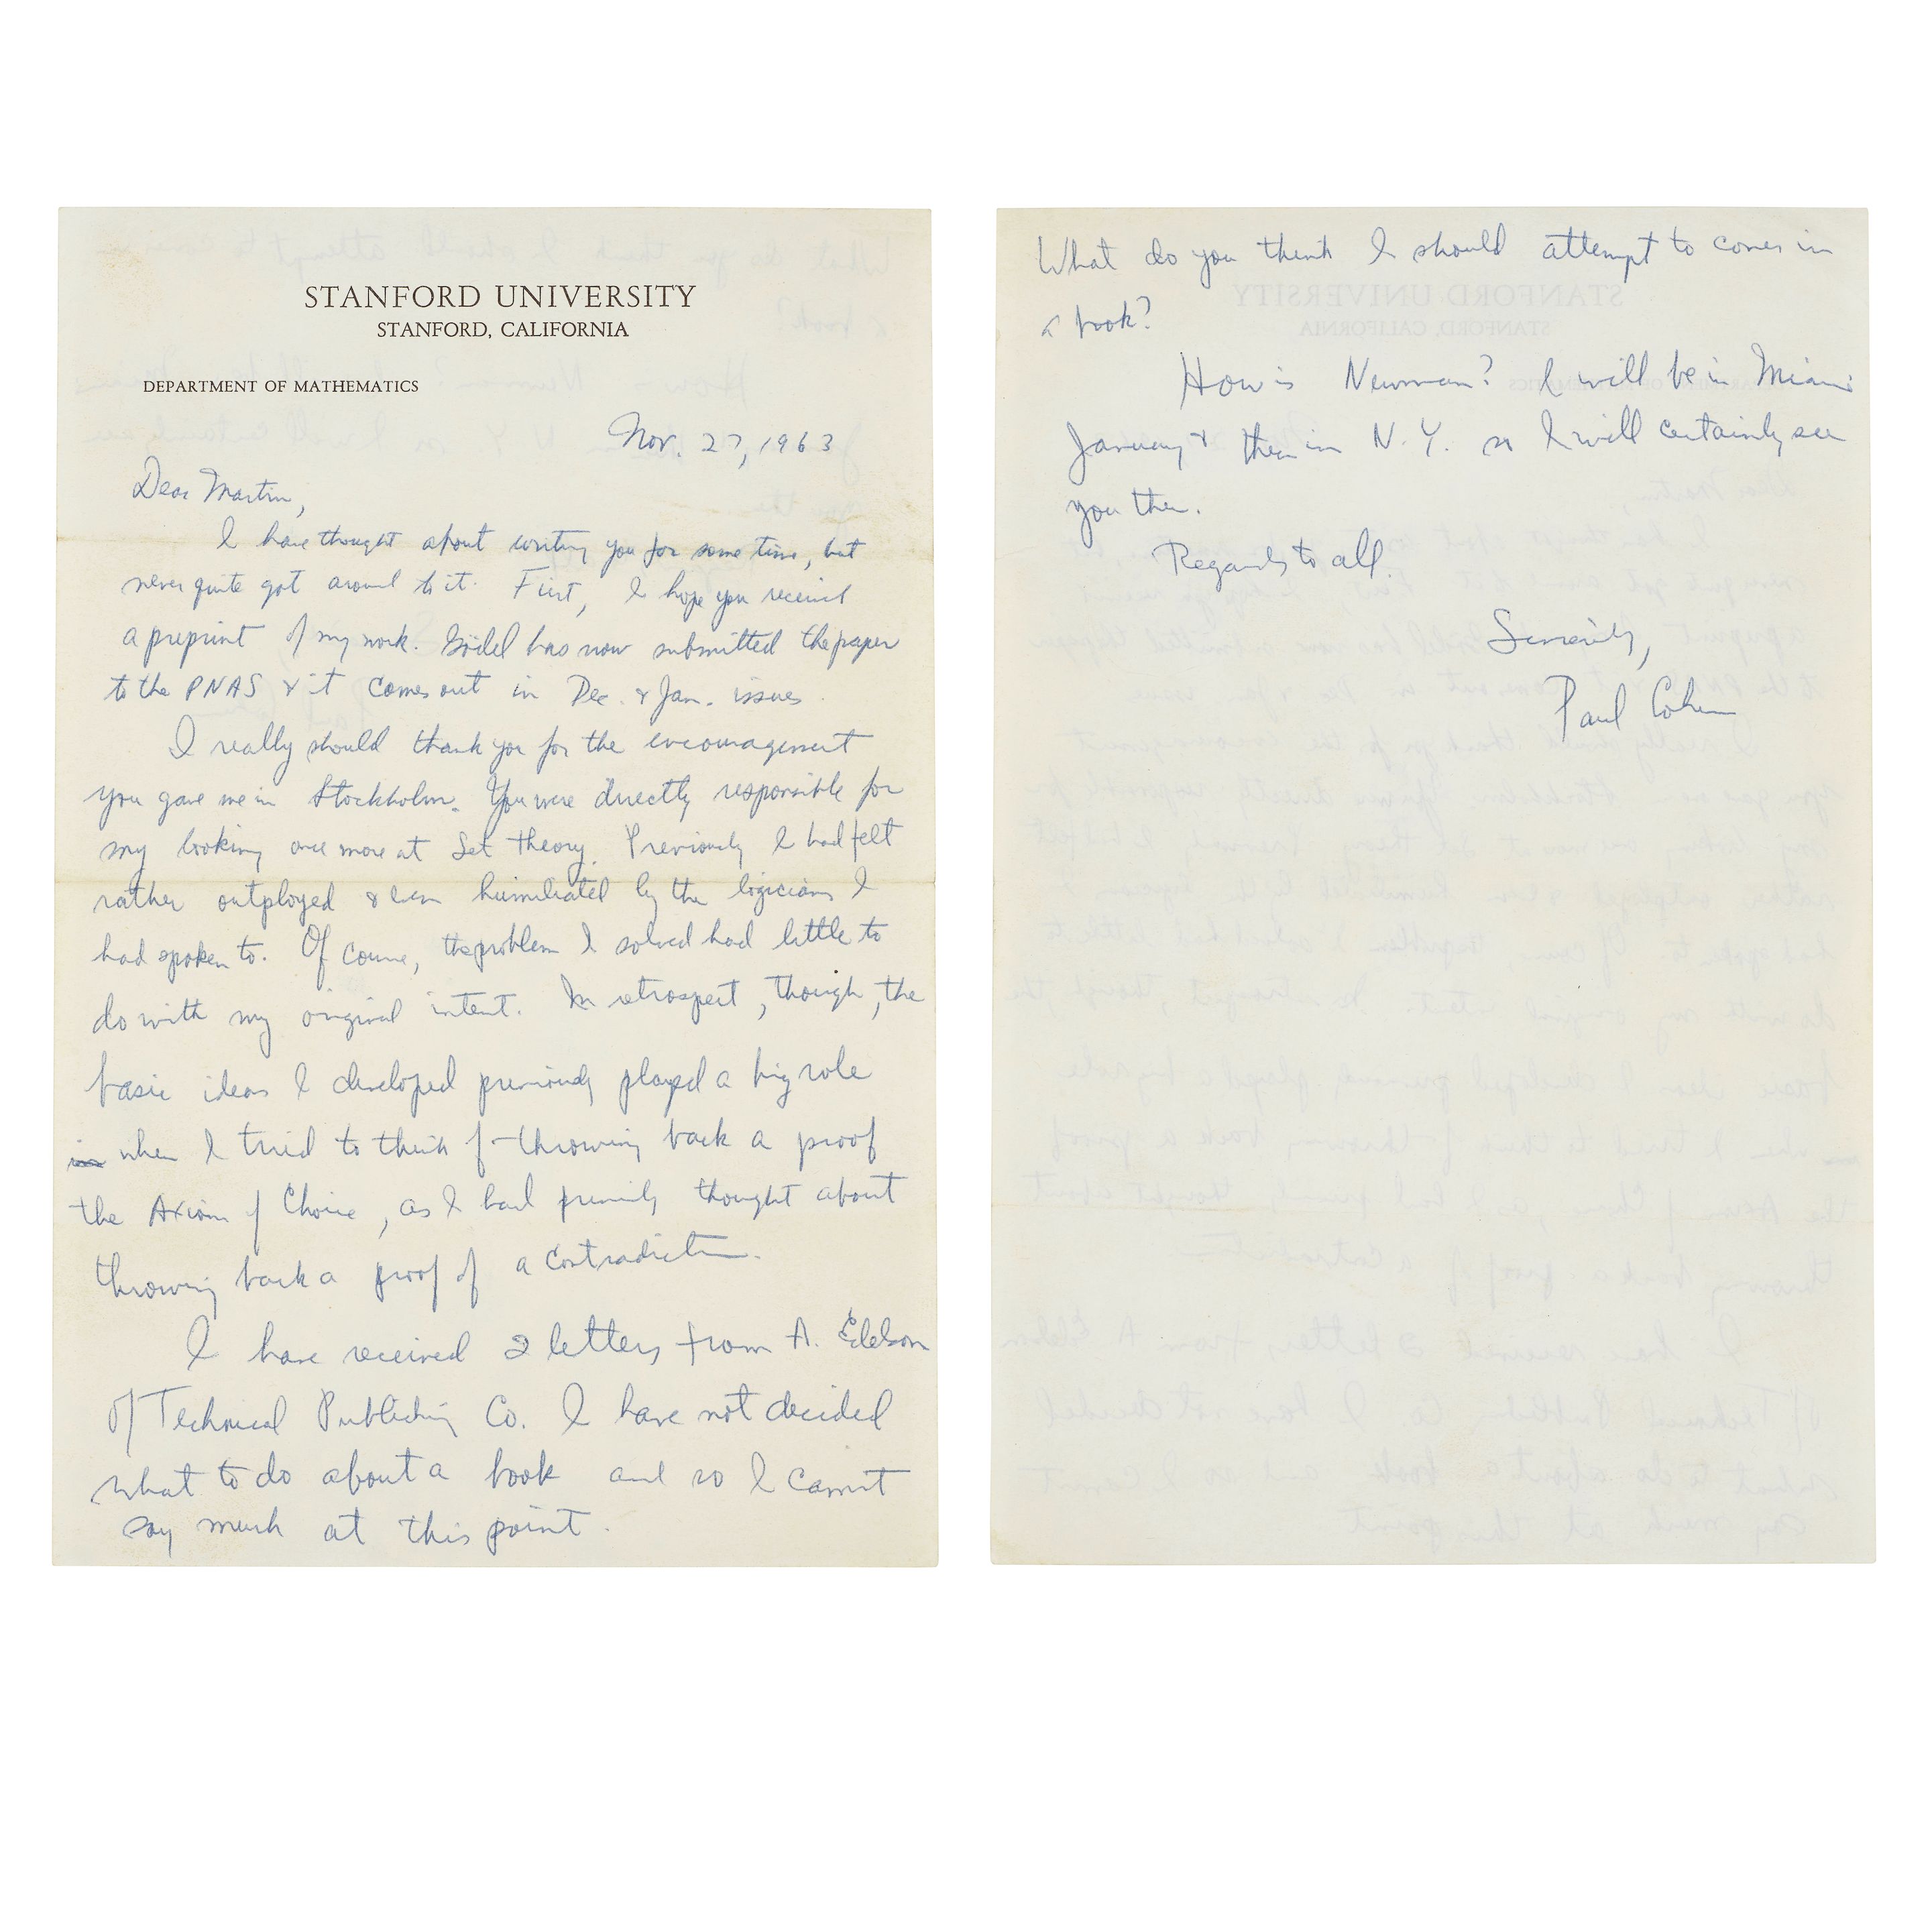 STANFORD UNIVERSITY
STANFORD, CALIFORNIA
DEPARTMENT OF MATHEMATICS
Nov. 27, 1963
Dear Martin,
I have thought about writing you for some time, but
never quite got around to it. First, I hope you received
a preprint of my work. Gödel has now submitted the paper
to the PNAS & it comes out in Dec. & Jan. issues.
I really should thank you for the encouragement
you gave me in Stockholm. You were directly responsible for
my looking once more at Set Theory. Previously I had felt
rather outployed & even humiliated by the logicians I
had spoken to. Of course, the problem I solved had little to
do with my original intent. In retrospect, though, the
basic ideas I developed previously played a big role
when I tried to think of throwing back a proof
the Axiom of Choice, as I had previously thought about
throwing back a proof of a contradiction.
I have received 2 letters from A. Edelson
of Technical Publishing Co. I have not decided
what to do about a book and so I cannot
say much at this point.
What do you think I should attempt to comes in
a book?
How is Newman? I will be in Miami
January & then in N.Y. so I will certainly see
you then.
Regards to all.
Sincerely,
Paul Cohen